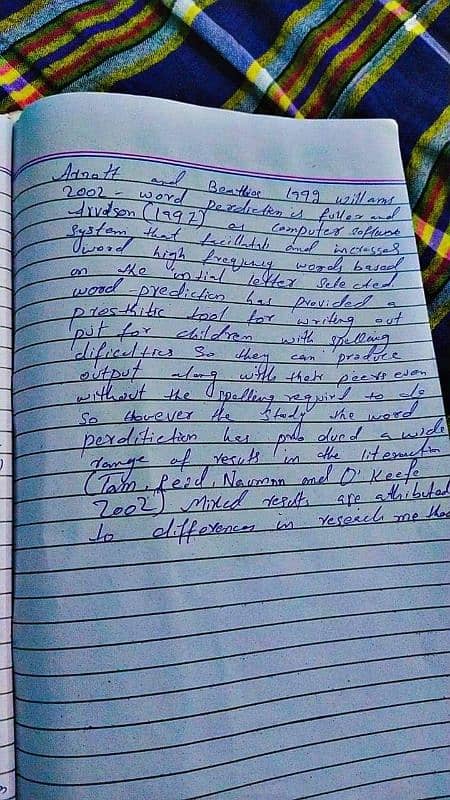 and Beattie 1999 willams
2002 - word perdiction is fuller and
Arvdson (1997) as computer software
system that facilitate and increases
word high frequency words based
on the initial letter selected
word-prediction has provided a
prosthitic tool for writing out
put for children with spelling
dificulties so they can produce
output along with their peers even
without the spelling requird to do
so However the study the word
perdiction has produced a wide
range of results in the literature
(Tam, Reid, Naumnn and O'Keefe
2002) Mixed results are athibuted
to differences in reseach